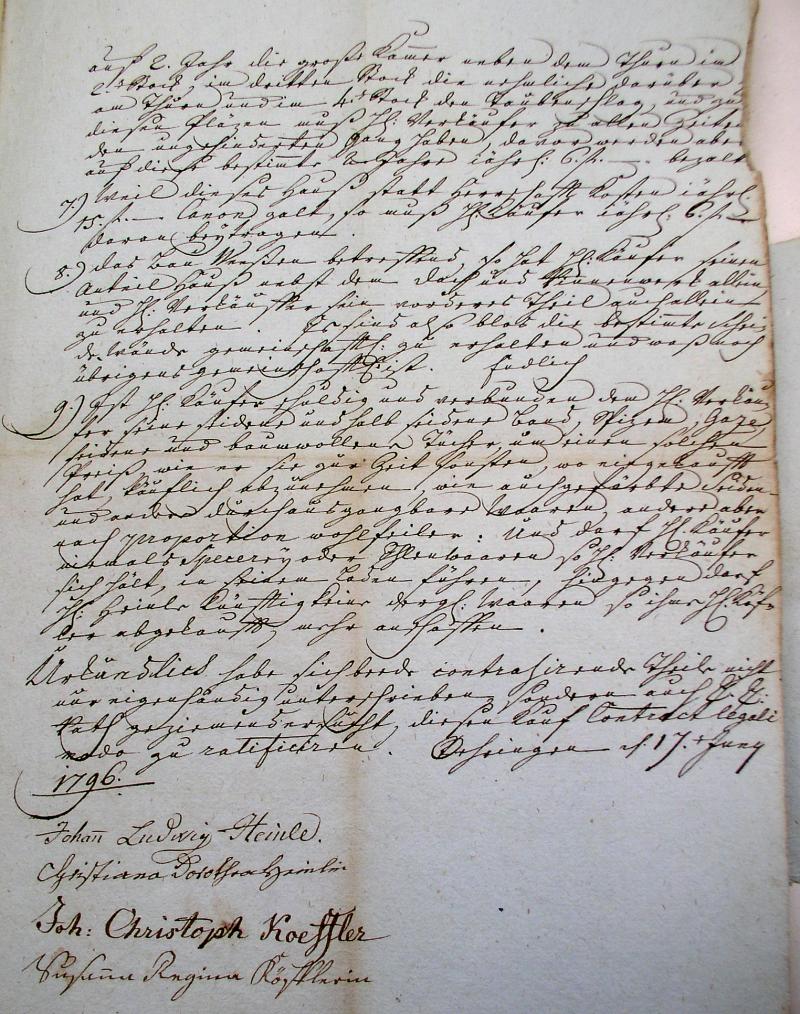 auf 2. Jahr die große Kammer neben dem Thurn im
2.t Stock, im dritten Stock die nehmliche darüber
am Thurn und im 4.t Stock den Taubenschlag, und zu
diesen Pläzen muß H: Verkäufer zu allen Zeiten
den ungehinderten Gang haben, davor werden aber
auf diese bestimmte 2. Jahre jährl: 6 f. — bezalt
7.) Weil dieses Hauß statt Herrschafftl Kosten jährl:
15. f. — Canon galt, so muß H. Käufer jährl: 6. f. —
daran beytragen.
8.) Das Bau Weeßen betreffend, so hat H: Käufer seinen
Antheil Hauß nebst dem Dach und Rinnenwerk allein,
und H: Verkäuffer sein vorderes Theil auch allein
zu erhalten. Es sind also blos die bestimmte Schei-
de Wände gemeinschafftl: zu erhalten und was noch
übrigens gemeinschafftl ist. Endlich
9.) Ist H: Käufer schuldig und verbunden dem H: Verkäu-
fer seine seidene und halb seidene Band, Spizen, Gaze
seidene und baumwollene Tücher um einen solchen
Preiß, wie er sie zur Zeit sonsten, wo eingekaufft
hat, käuflich abzunehmen, wie auch gefärbte Seiden
und andere durchaus gangbare Waaren, andere aber
nach proportion wohlfeiler: Und darf H: Käufer
niemals Specerey oder Ehlenwaaren so H: Verkäufer
sich hält, in seinem Laden führen, hingegen darf
H: Heinle künfftig keine dergl: Waaren so ihme H: Köf-
ler abgekaufft, mehr anschaffen.
Urkundlich habe sich beede contrahirende Theile nicht
nur eigenhändig unterschrieben, sondern auch
Rath geziemender, diesen Kauf Contract legali
modo zu ratificiren. Oehringen d. 17. Juny
1796.
Johan̄ Ludwig Heinle.
Christiana Dorothea Heinlin
Joh: Christoph Koeffler
Susan̄a Regina Köfflerin